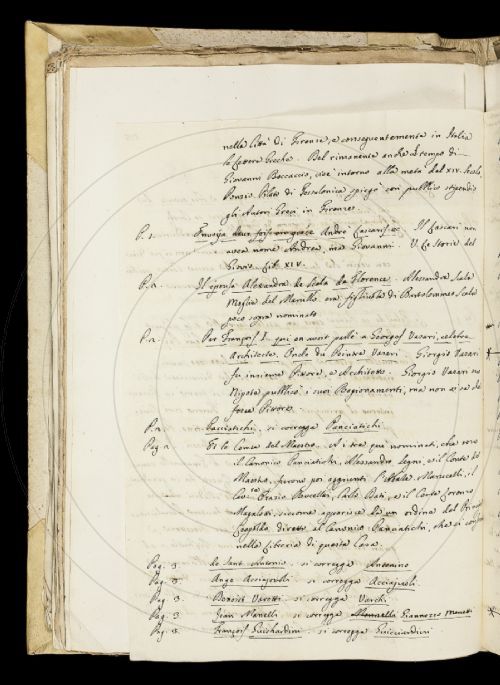 nella Città di Firenze, e conseguentemente in Italia
le lettere Greche. Del rimanente anche a tempo di
Giovanni Boccaccio, cioè intorno alla metà del XIV. Secolo,
Pilato di Tessalonica spiegò con pubblico stipendio
gli Autori Greci in Firenze.
P. 1. Envoya deux fois en grece André Lascaris &c. Il Lascari non
avea nome Andrea, ma Giovanni. V. le Storie del
Giovio Lib. XIV.
P. 2. Il epousa Alexandra de Scala de Florence. Alessandra Scala
Moglie del Marullo era figliuola di Bartolommeo Scala
poco sopra nominato.
P. 2. Par François I. qui en avoit parlé a Georges Vasari, celebre
Architecte, Oncle du Peintre Vasari. Giorgio Vasari
fu insieme Pittore, e Architetto. Giorgio Vasari suo
Nipote pubblicò i suoi Ragionamenti, ma non si sa che
fosse Pittore.
P. 2. Pacciatichi, si corregga Panciatichi.
Pag. 2. Et le Comte del Maestro. A i tre qui nominati, che sono
il Canonico Panciatichi, Alessandro Segni, e il Conte del
Maestro, furono poi aggiunti l'Abate Marucelli, il
Cav. Orazio Rucellai, Carlo Dati, e il Conte Lorenzo
Magalotti, siccome apparisce da un ordine del Principe
Leopoldo diretto al Canonico Panciatichi, che si conserva
nella Libreria di questa Casa.
Pag. 3. de Saint Antonio. si corregga Antonino
Pag. 3. Ange Acciajvolli si corregga Acciajuoli.
Pag. 3. Benoist Varetti. si corregga Varchi.
Pag. 3. Jean Manetti si corregga Giannozzo Manetti
Pag. 3. François Guichardini. si corregga Guicciardini